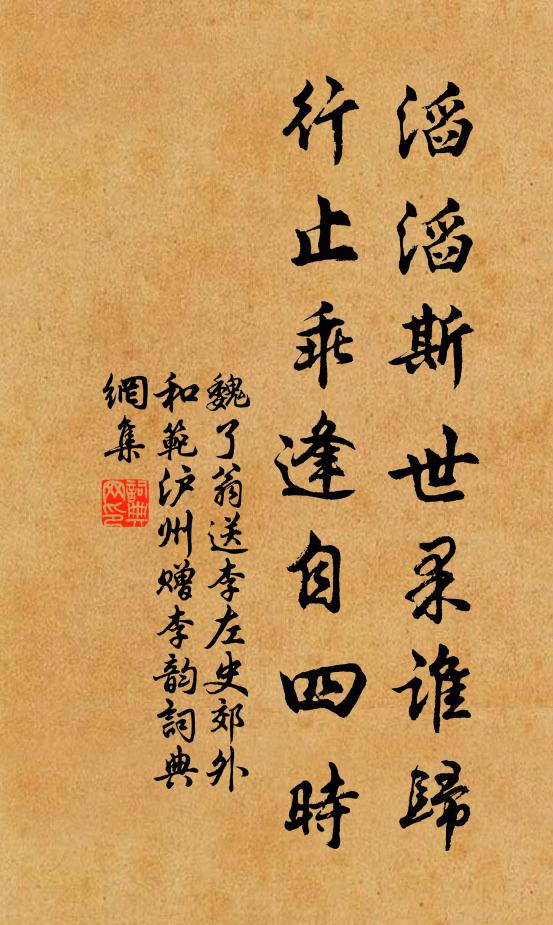 滔滔斯世果谁歸
行止乖逢自四時
魏了翁送李左史郊外
和範沪州赠李韵詞典
網集
詞典網印